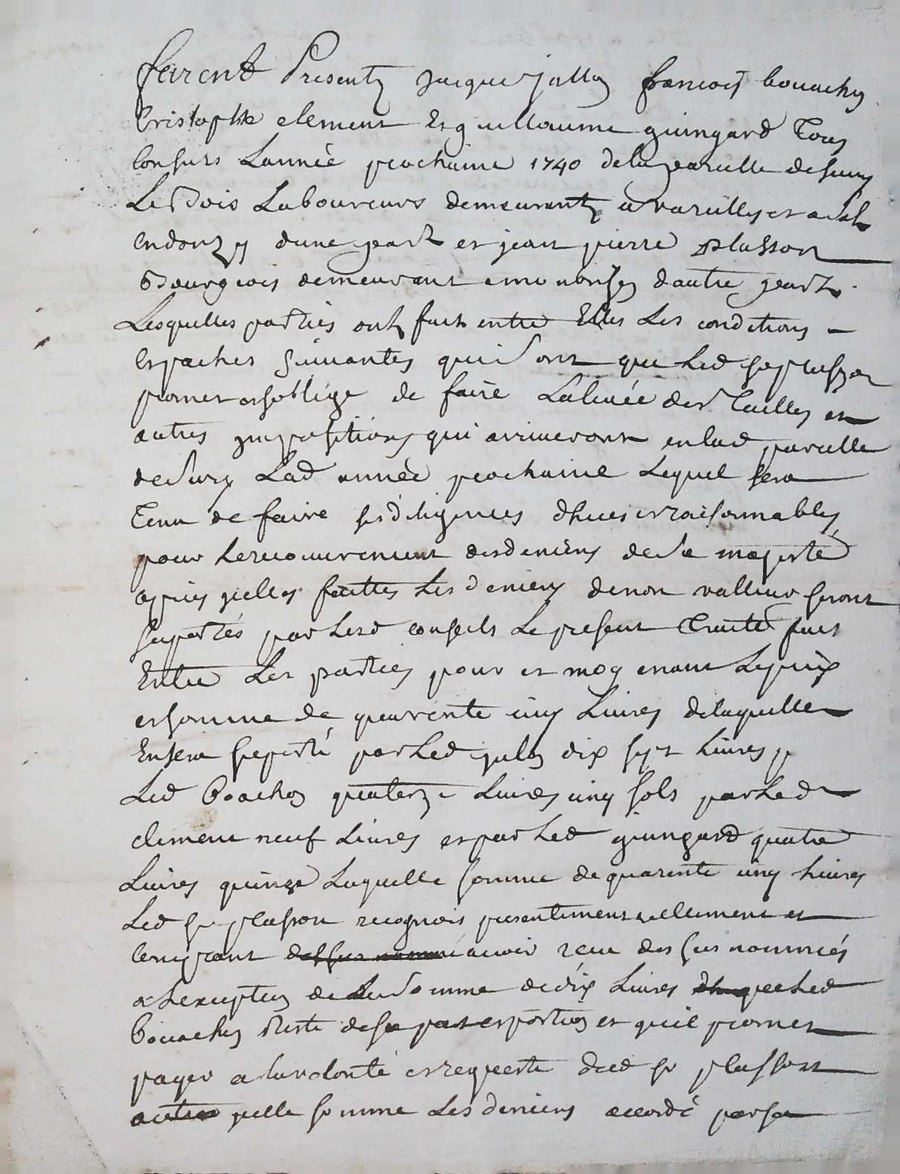 furent Presentz Jacque jallon francois bouachon
Cristophle clement Et guillaume guingard Tous
Consuls Lannée prochaine 1740 dela parcelle desury
Le Bois Laboureurs demeurantz a vareilles et
dune part et jean pierre plasson
Bourgeois demeurant dautre part
Lesquelles parties ont fait entre Elles Les conditions
et paches suivantes qui sont que Led sr plasson
promet et soblige de faire La levée des Tailles et
autres jmpositions qui arriveront en lad parcelle
de Sury Lad année prochaine Lequel sera
Tenu de faire ses diligences dhues et raisonnables
pour Le recouvrement des deniers de Sa majesté
apres jcelles faittes Les deniers de non valleur seront
suportés par Lesd consuls Le present Traité fait
Entre Les parties pour et moyenant Le prix
et somme de quarente cinq Livres de laquelle
En sera suporté par Led jalon dix sept Livres p
Led Boachon quatorze Livres cinq sols par Led
clement neuf Livres et par Led guingard quatre
Livres quinze Laquelle somme de quarente cinq Livres
Led sr plasson recognois presentement reellement et
avoir receu des sus nommés
a Lexception de La Somme de dix Livres que Led
Bouachon Reste de sa portion et quil promet
payer a la volonté et requeste dud sr plasson
jcelle somme Les deniers accordé par sa